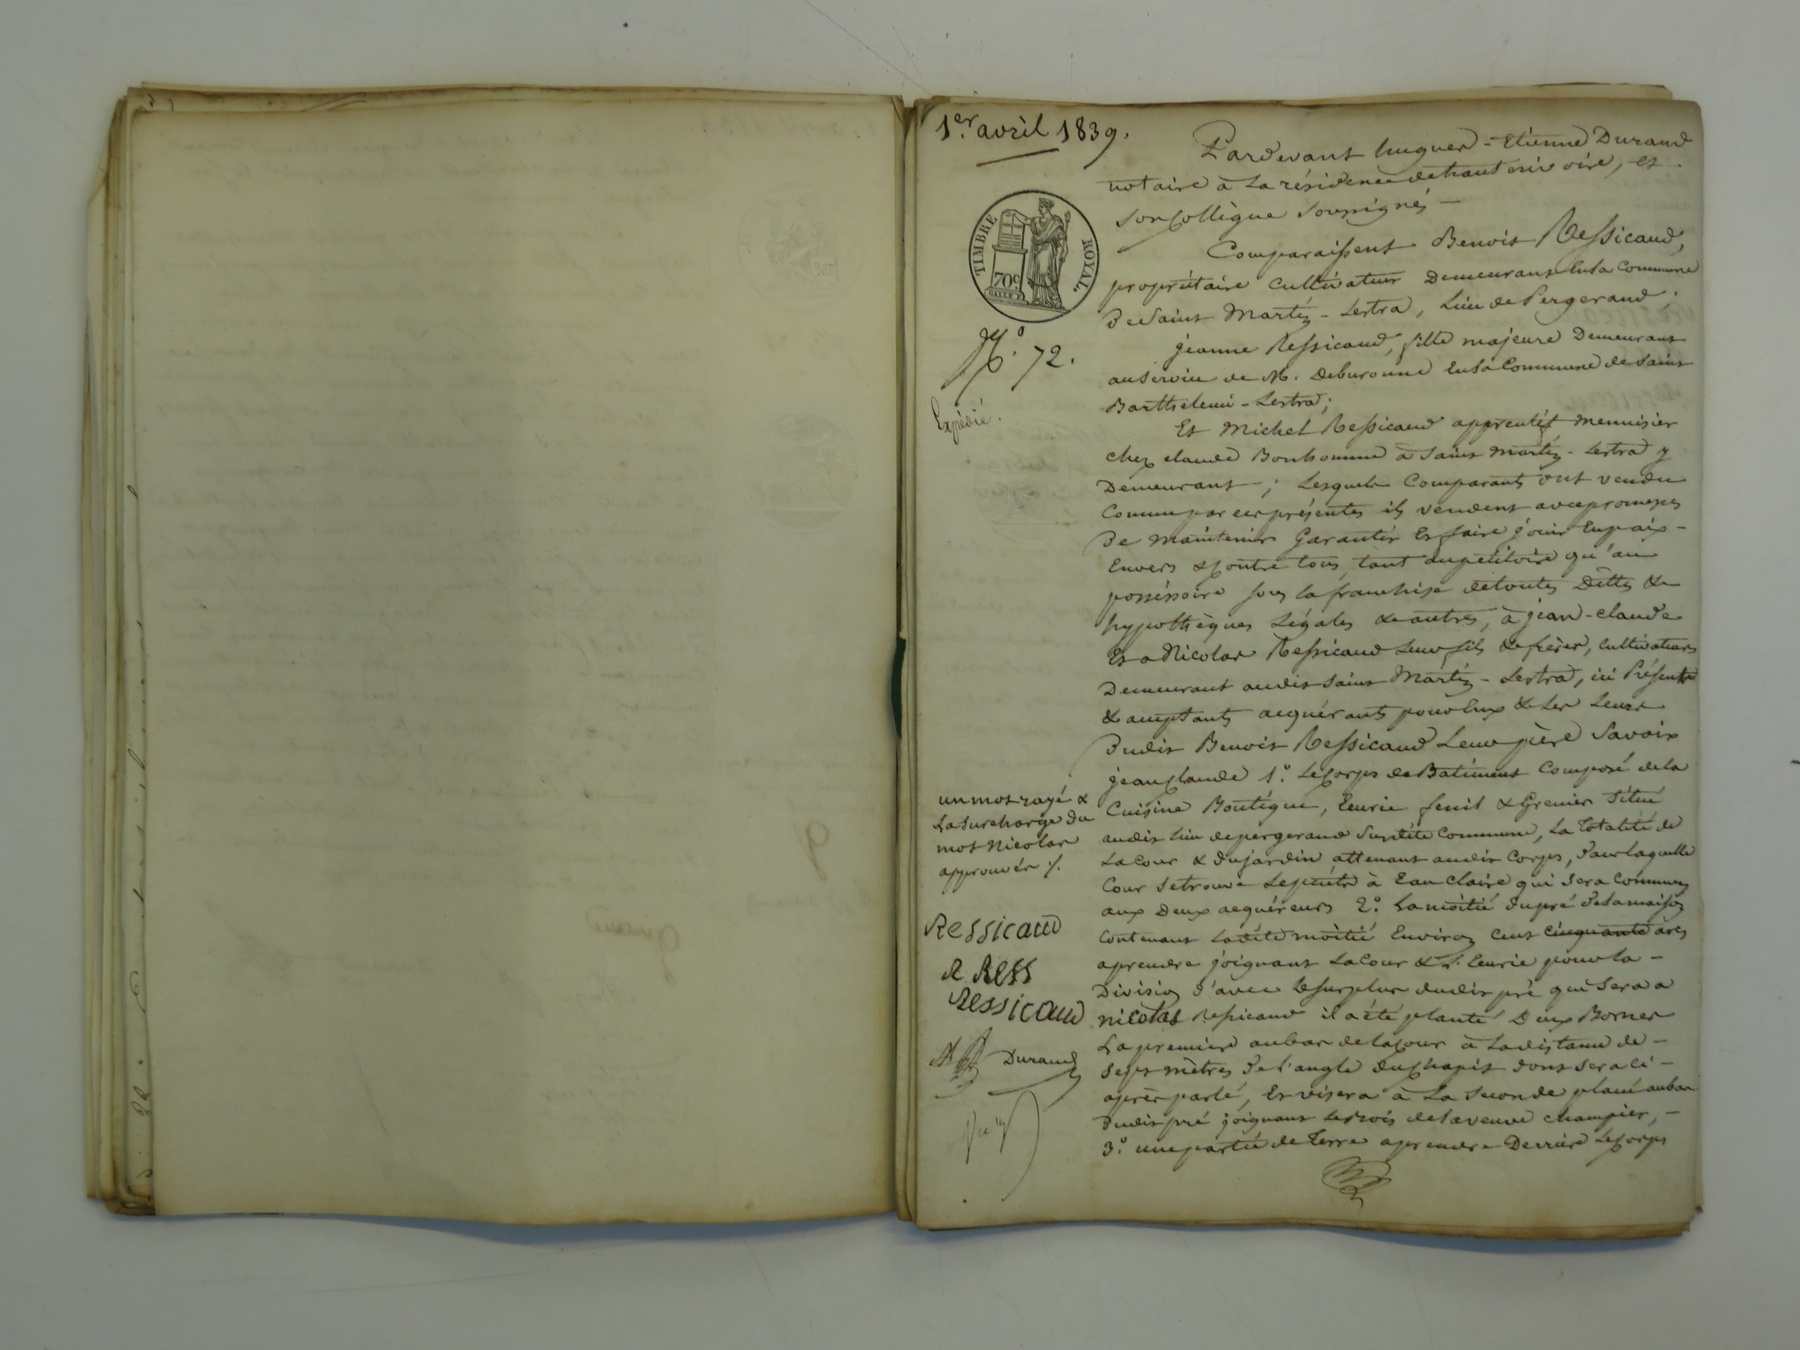 1er avril 1839.
TIMBRE ROYAL.
70c
N.o 72.
Expédié.
Pardevant hugues-Etienne Durand
notaire à la résidence de hauterivoire, et
son Collègue soussignés —
Comparaissent Benoit Ressicaud,
propriétaire cultivateur Demeurant En la Commune
De Saint Martin-Lestra, Lieu de Pergerand
jeanne Ressicaud, fille majeure Demeurant
au service de M. En la Commune de Saint
Barthelemi-Lestra;
Et Michel Ressicaud apprentif menuisier
chez claude Bonhomme à Saint Martin-Lestra y
Demeurant; Lesquels Comparants ont vendu
Comme par ces présentes ils vendent avec promesses
De maintenir Garantir Et faire jouir En paix -
Envers & Contre tous, tant au pétitoire qu'au
possessoire sous la franchise de toutes Dettes &
hypothèques Légales & autres, à jean-claude
Et a Nicolas Ressicaud Leur fils & frères, cultivateurs
Demeurant audit Saint Martin-Lestra, ici Présents
& acceptants acquérants pour Eux & Les Leurs
Dudit Benoit Ressicaud Leur père Savoir
jean claude 1.o Le Corps de Batiment Composé de la
Cuisine Boutique, Ecurie fenil & Grenier Situé
audit Lieu de pergerand Susdite Commune, La Totalité de
La Cour & du jardin attenant audit Corps, Dans laquelle
Cour se trouve Le puits à Eau Claire qui Sera Commun
aux Deux acquéreurs 2.o La moitié du pré De la maison
Contenant La dite moitié Environ Cent cinquante ares
a prendre joignant La Cour & L'Ecurie pour la -
Division D'avec Le Surplus dudit pré qui Sera a
nicolas Ressicaud il a été planté Deux Bornes
La premiere au bas de la Cour à La distance de -
Sept mètres De l'angle du Chapit dont Sera ci -
après parlé, Et visera à La Seconde placé au bas
Dudit pré joignant Le Bois de la veuve champier, -
3.o une partie de Terre a prendre Derriere Le Corps
un mot rayé &
La Surcharge du
mot Nicolas
approuvés ./.
Ressicaud
R. Ress
Ressicaud
Durand